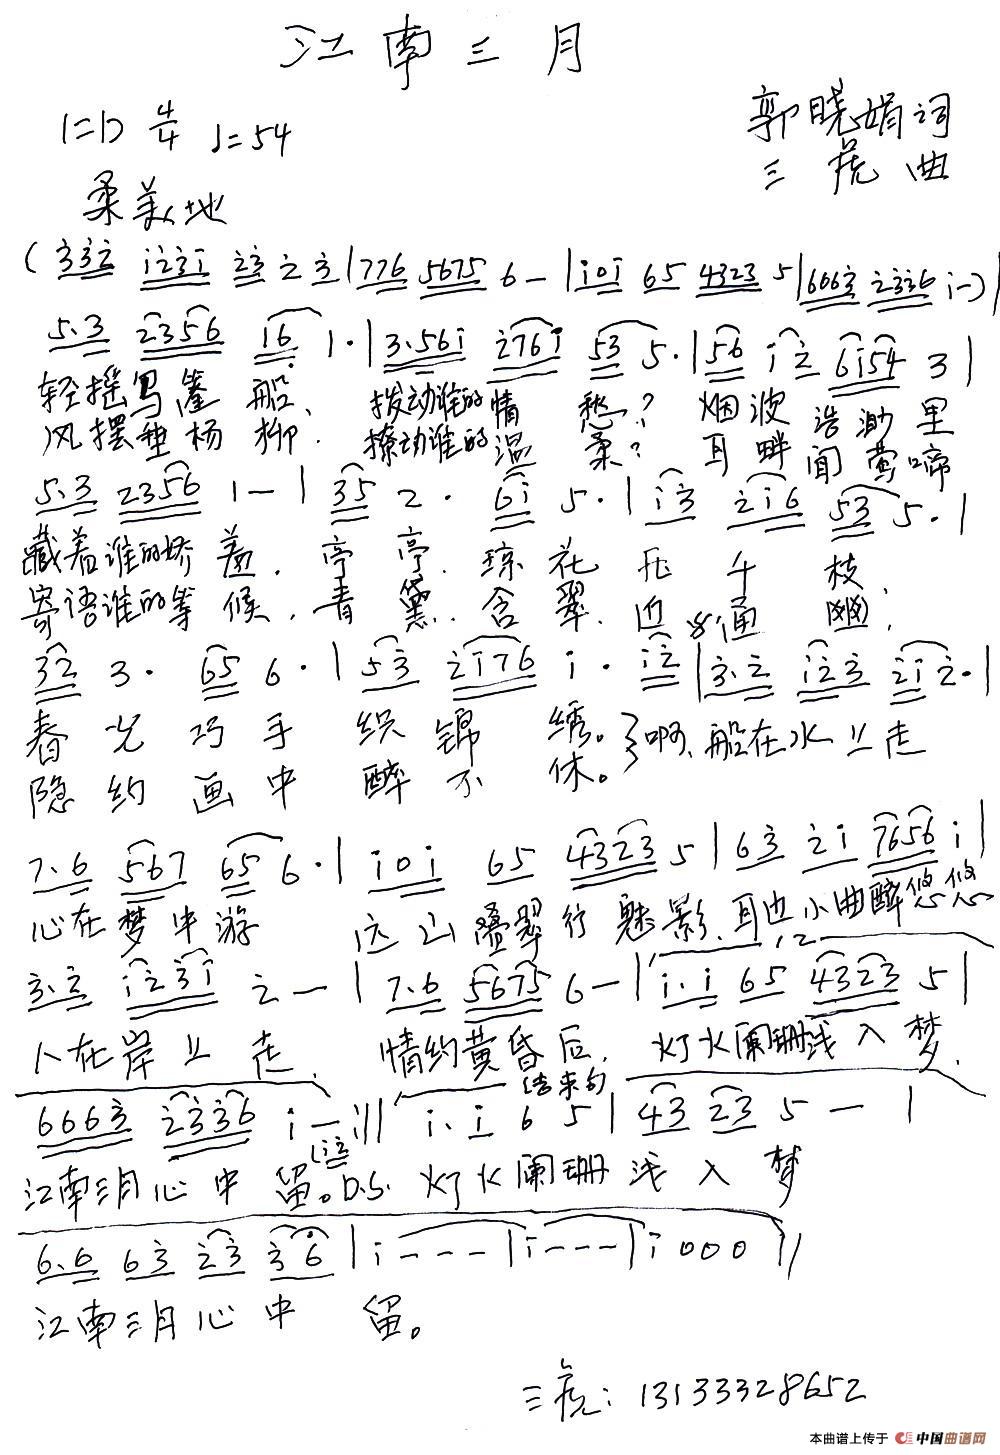 江南三月
1=D 4/4 ♩=54
郭晓娟词
三虎曲
柔美地
(3̇3̇2̇ 1̇2̇3̇1̇ 2̇3̇ 2̇ 3̇|776 5675 6 -|1̇01̇ 65 4323 5|6063̇ 2̇3̇3̇6 1̇ -)|
5.3 2356 16̣ 1.|3.561̇ 2̇761̇ 53 5.|56 1̇ 2̇ 61̇54 3|
轻摇乌篷船, 拨动谁的情愁? 烟波浩渺里
风摆垂杨柳, 撩动谁的温柔? 耳畔闻莺啼
5.3 2356 1 -|35 2. 61̇ 5.|1̇3̇ 2̇1̇6 53 5.|
藏着谁的娇羞, 亭亭琼花开千枝
寄语谁的等候, 青黛含翠迎通幽,
32 3. 65 6.|53̇ 2̇1̇76 1̇. 1̇2̇|3̇.2̇ 1̇2̇3̇ 2̇1̇ 2̇.|
春光巧手织锦绣。}啊,船在水上走
隐约画中醉不休。
7.6 567 65 6.|1̇01̇ 65 4323 5|63̇ 2̇1̇ 7656 1̇|
心在梦中游 远山叠翠行魅影,耳边小曲醉悠悠
1,2
3̇.2̇ 1̇2̇3̇1̇ 2̇ -|7.6 5675 6 -|1̇.1̇ 65 4323 5|
人在岸上走, 情约黄昏后, 灯火阑珊浅入梦,
结束句
6663̇ 2̇3̇3̇6 1̇ - :|| 1̇.1̇ 6 5|43 23 5 - |
(1̇2̇
江南三月心中留。D.S. 灯火阑珊浅入梦
6.6 63̇ 2̇3̇ 3̇6|1̇ - - -|1̇ - - -|1̇ 0 0 0||
江南三月心中留。
三虎:13133328652
本曲谱上传于 中国曲谱网